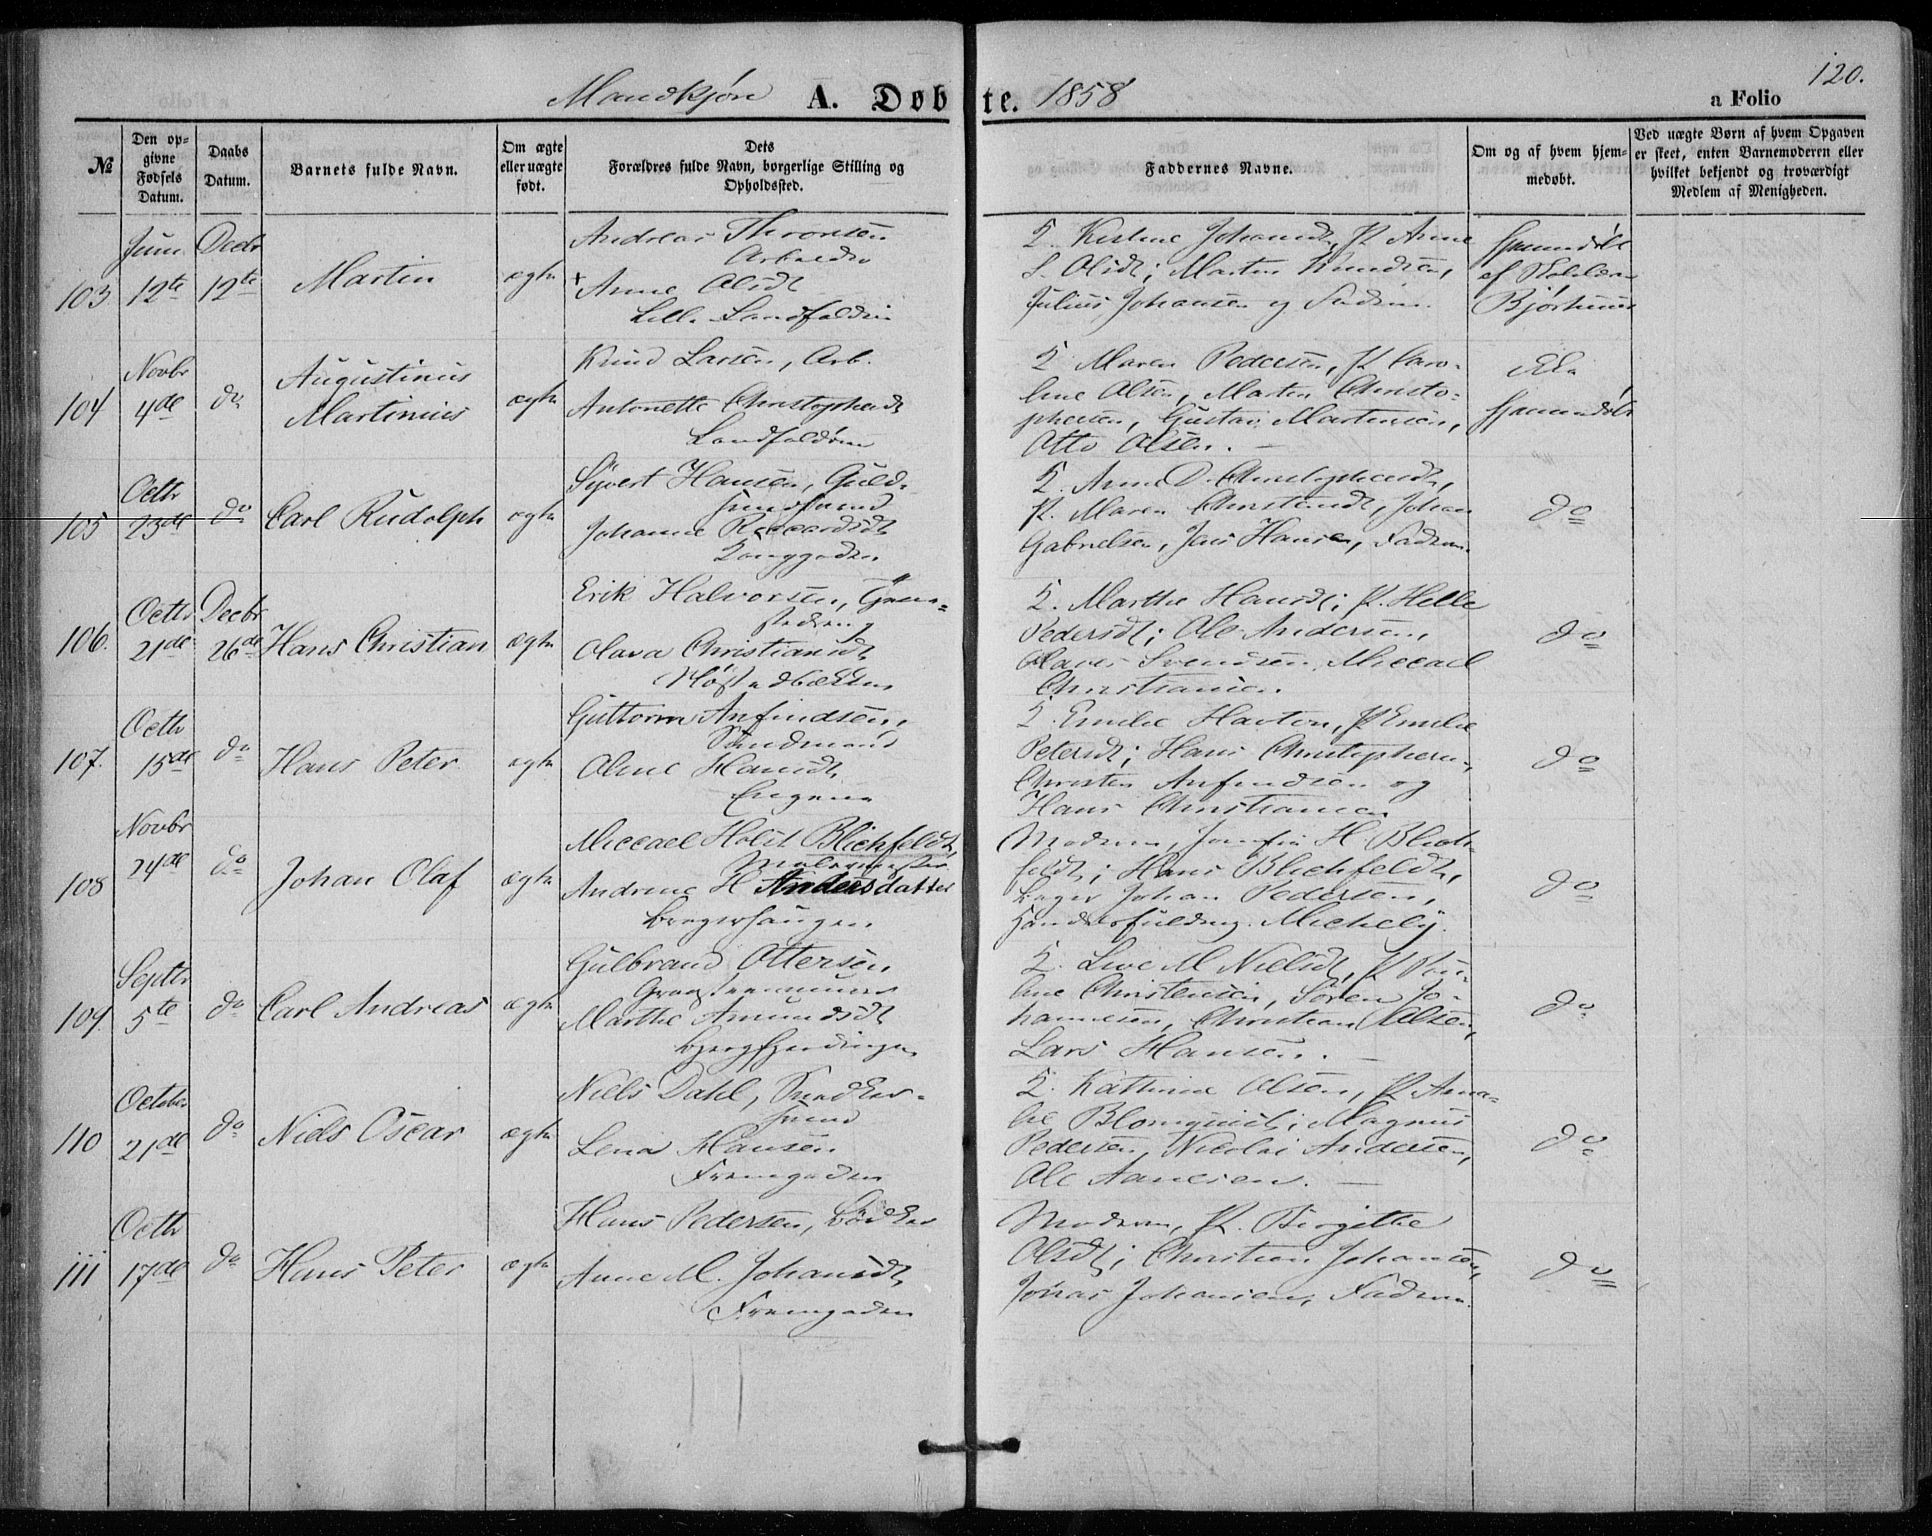 120.
Mandkjøn A. Døbte. 1858 a Folio
№
Den op-
givne
Fødsels
Datum.
Daabs
Datum.
Barnets fulde Navn.
Om ægte
eller uægte
født.
Dets
Forældres fulde Navn, borgerlige Stilling og
Opholdssted.
Faddernes Navne.
Om og af hvem hjem-
medøbt.
Ved uægte Børn af hvem Opgaven
er skeet, enten Barnemoderen eller
hvilket bekjendt og troværdigt
Medlem af Menigheden.
103
Juni
12te
Decbr
12te
Martin
ægte
Andreas Thronsen
Arbeider
+ Anne Olsdt
Lille Landfalden
K. Kistine Johansdt, P. Anne
S. Olsdt; Martin Knudsen,
Julius Johansen og Faderen.
Hjemmedøbt
af
104
Novbr
4de
do
Augustinus
Martinius
ægte
Knud Larsen, Arb.
Antonette Christophersdt
Landfaldøen
K. Maren Pedersen, P. Caro-
line Olsen, Martin Christo-
phersen, Gustav Martinsen,
Otto Olsen. —
Ikke
hjemmedøbt
105
Octbr
23de
do
Carl Rudolph
ægte
Syvert Hansen, Guld-
smedsvend
Johanne
Konggaden
K. Anne D. Christophersdt,
P. Maren Christensdt, Johan
Gabrielsen, Jens Hansen, Faderen
do
106.
Octbr
21de
Decbr
26de
Hans Christian
ægte
Erik Halvorsen,
Olava Christiansdt
K. Marthe Hansdt; P. Helle
Pedersdt; Ole Andersen,
Svendsen, Miccael
Christiansen.
do
107.
Octbr
15de
do
Hans Peter
ægte
Guttorm Anfindsen,
Oline Hansdt,
Engene
K. Emilie P. Emilie
Petersdt; Hans Christophersen,
Christen Anfindsen og
Hans Christiansen
do
108
Novbr
24de
do
Johan Olaf
ægte
Miccael Holst Blichfeldt,
Malermester
Andrine H Andersdatter
Bragerhaugen
Moderen, Jomfru H. Blich-
feldt; Hans Blichfeldt,
Bager Johan Pedersen,
Michely.
do
109.
Septbr
5te
do
Carl Andreas
ægte
Gulbrand Ottersen,
Marthe Amundsdt
K. Live M Nielsdt, P. Pau-
line Christensen, Søren Jo-
hannesen, Christian Olsen,
Lars Hansen. —
do
110
October
21de
do
Niels Oscar
ægte
Niels Dahl, Snedker-
svend
Lena Hansen
Fremgaden
K. Kathrine Olsen, P. Ama-
lie Blomquist; Magnus
Pedersen, Nicolai Andersen,
Ole Aanesen. —
do
111
Octbr
17de
do
Hans Peter
ægte
Hans Pedersen, Bødker
Anne M. Johansdt,
Fremgaden
Moderen, P. Birgithe
Olsdt; Christian Johansen,
Jonas Johansen, Faderen.
do